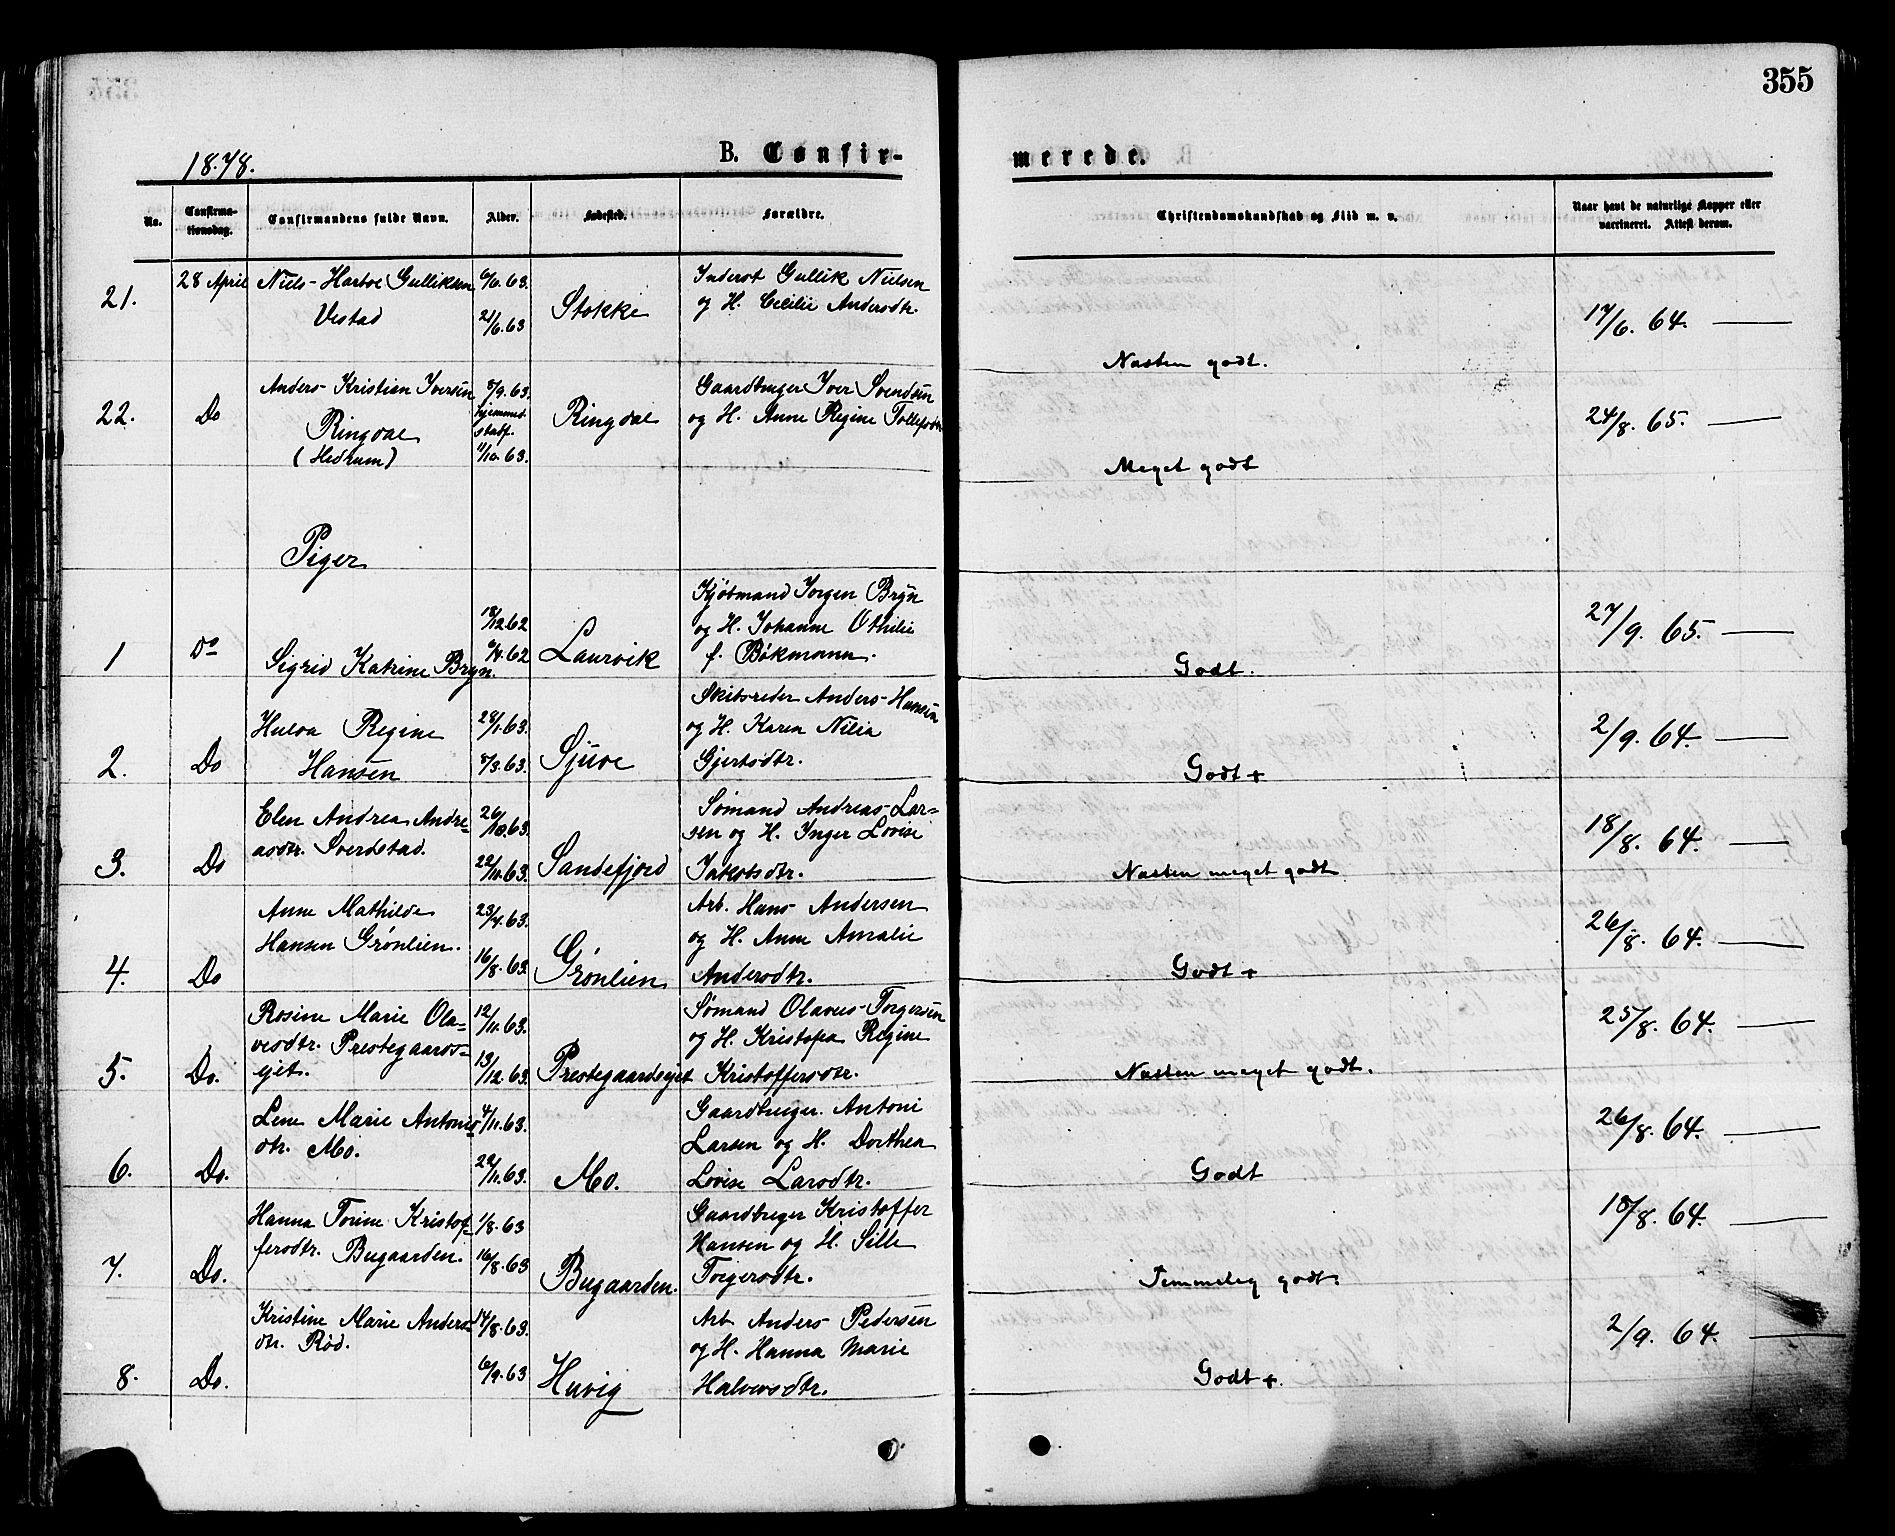 355
1878.
B. Confir-
merede.
No.
Confirma-
tionsdag.
Confirmandens fulde Navn.
Alder.
Fødested.
Forældre.
Christendomskundskab og Flid m. v.
Naar havt de naturlige Kopper eller
vaccineret. Attest derom.
21.
28 April
Niels Hartvo Gulliksen
Vestad
6/6. 63.
21/6. 63
Stokke
Inderst Gullik Nielsen
og H. Cecilie Andersdtr.
Næsten godt.
17/6. 64.
22.
Do
Anders Kristian Iversen
Ringdal
(Hedrum)
8/9. 63.
hjemmed.
stadf.
11/10. 63.
Ringdal
Gaardbruger Iver Svendsen
og H. Anne Regine Tollefsdtr.
Meget godt
24/8. 65.
Piger
1
Do
Sigrid Katrine Bryn.
18/12. 62
Laurvik
Kjøbmand Jørgen Bryn
og H. Johanne Othilie
f. Bøkmann.
Godt.
27/9. 65.
2.
Do
Hulva Regine
Hansen
28/1. 63.
8/3. 63.
Sjuve
Skibsreder Anders Hansen
og H. Karen Nilia
Gjertsdtr.
Godt +
2/9. 64.
3.
Do
Elen Andrea Andre-
asdtr. Sverdstad.
26/10. 63.
22/11. 63.
Sandefjord
Sømand Andreas Lar-
sen og H. Inger Lovise
Jakobsdtr.
Næsten meget godt
18/8. 64.
4.
Do
Anne Mathilde
Hansen Grønlien.
23/4. 63.
16/8. 63.
Grønlien
Arb. Hans Andersen
og H. Anne Amalie
Andersdtr.
Godt +
26/8. 64.
5.
Do.
Rosine Marie Ola-
vesdtr. Prestegaards-
ejet.
12/11. 63.
13/12. 63.
Prestegaardsejet
Sømand Olaves Torgersen
og H. Kristofa Regine
Kristoffersdtr.
Næsten meget godt.
25/8. 64.
6.
Do.
Lene Marie Antonis-
dtr. Mo.
4/11. 63.
22/11. 63.
Mo.
Gaardbruger Antoni
Larsen og H. Dorthea
Lovise Larsdtr.
Godt
26/8. 64.
7.
Do.
Hanna Torine Kristof-
fersdtr. Bugaarden.
1/8. 63
16/8. 63
Bugaarden.
Gaardbruger Kristoffer
Hansen og H. Sille
Torgersdtr.
Temmelig godt.
18/8. 64.
8.
Do.
Kristine Marie Anders-
dtr. Rød.
14/8. 63.
6/9. 63
Huvig
Arb Anders Pedersen
og H. Hanna Marie
Halvorsdtr.
Godt +.
2/9. 64.